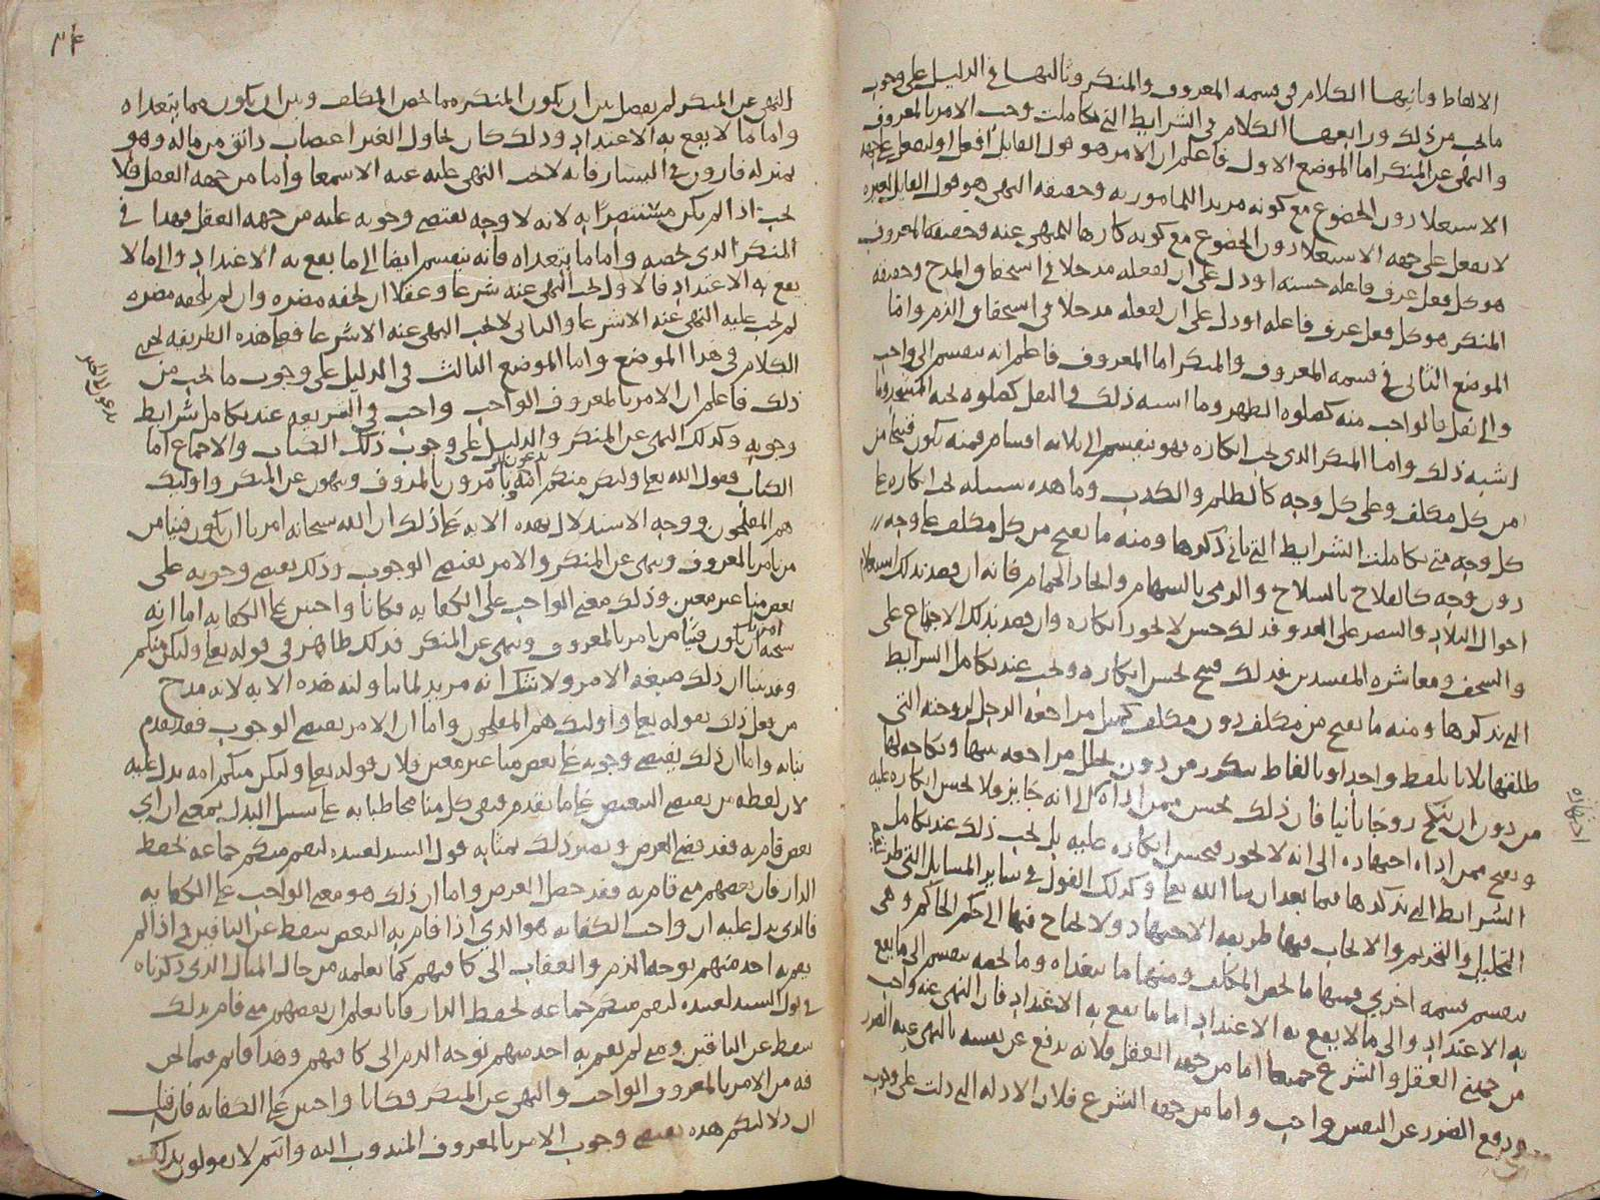 الالفاظ وثانيها الكلام في قسمه المعروف والمنكر وثالثها في الدليل على وجوب
ما يجب من ذلك ورابعها الكلام في الشرايط التي تكاملت وجب الامر بالمعروف
والنهي عن المنكر اما الموضع الاول فاعلم ان الامر هو قول القايل افعل او ليفعل على جهه
الاستعلا دون الخضوع مع كونه مريدا للمامور به وحقيقه النهي هو قول القايل لغيره
لا يفعل على جهه الاستعلا دون الخضوع مع كونه كارها للمنهي عنه وحقيقه المعروف
هو كل فعل عرف فاعله حسنه او دل على ان لفعله مدخلا في استحقاق المدح وحقيقه
المنكر هو كل فعل عرف فاعله او دل على ان لفعله مدخلا في استحقاق الذم واما
الموضع الثاني في قسمه المعروف والمنكر اما المعروف فاعلم انه ينقسم الى واجب
والى نفل فالواجب منه كصلوه الظهر وما اشبه ذلك والنفل كصلوه
اشبه ذلك واما المنكر الذي يجب انكاره فهو ينقسم الى ثلاثه اقسام فمنه يكون قبيحا من
من كل مكلف وعلى كل وجه كالظلم والكذب وما هذه سبيله يجب انكاره على
كل وجه متى تكاملت الشرايط التي ياتي ذكرها ومنه ما يقبح من كل مكلف على وجه
دون وجه كالفلاح بالسلاح والرمي بالسهام واتخاذ الحمام فانه ان قصد بذلك استعلام
احوال البلاد والنصر على العدو فذلك حسن لا يجوز انكاره وان قصد بذلك الاجتماع على
والسخف ومعاشره المفسدين فذلك قبيح يحسن انكاره ويجب عند تكامل الشرايط
التي نذكرها ومنه ما يقبح من مكلف دون مكلف كمثل مراجعه الرجل لزوجته التي
طلقها ثلاثا بلفظ واحد او بالفاظ من دون تخلل مراجعه بينها ونكاحه لها
من دون ان تنكح زوجا ثانيا فان ذلك يحسن ممن اداه الى انه جايز ولا يحسن انكاره عليه
ويقبح ممن اداه اجتهاده الى انه لا يجوز فيحسن انكاره عليه بل يجب ذلك عند تكامل
الشرايط التي نذكرها فيما بعد ان شا الله تعالى وكذلك القول في ساير المسايل التي
التحليل والتحريم والايجاب فيها طريقه الاجتهاد ولا يحتاج فيها الى حكم الحاكم وهي
ينقسم قسمه اخرى فمنها ما يخص المكلف ومنها ما يتعداه وما يخصه ينقسم الى ما يقع
به الاعتداد والى ما لا يقع به الاعتداد اما ما يقع به الاعتداد فان النهي عنه واجب
من جهتي العقل والشرع جميعا اما من جهه العقل فلانه يدفع عن نفسه بالنهي عنه الضرر
ودفع الضرر عن النفس واجب واما من جهه الشرع فلان الادله التي دلت على وجوب
اجتهاده
٢٤
النهي عن المنكر لم يفصل بين ان يكون المنكر مما يخص المكلف وبين ان يكون مما يتعداه
واما ما لا يقع به الاعتداد وذلك كان يحاول الغير اغتصاب دانق من ماله وهو
بمنزله قارون في اليسار فانه لا يجب النهي عليه عنه الا سمعا واما من جهه العقل فلا
يجب اذا لم يكن مستضرا به لانه لا وجه يقتضي وجوبه عليه من جهه العقل فهذا في
المنكر الذي يخصه واما ما يتعداه فانه ينقسم ايضا الى ما يقع به الاعتداد والى ما لا
يقع به الاعتداد فالاول يجب النهي عنه شرعا وعقلا ان لحقه مضره وان لم يلحقه مضره
لم يجب عليه النهي عنه الا شرعا والثاني لا يجب النهي عنه الا شرعا فعلى هذه الطريقه يجري
الكلام في هذا الموضع واما الموضع الثالث في الدليل على وجوب ما يجب من
ذلك فاعلم ان الامر بالمعروف الواجب واجب في الشريعه عند تكامل شرايط
وجوبه وكذلك النهي عن المنكر والدليل على وجوب ذلك الكتاب والاجماع اما
الكتاب فقول الله تعالى ولتكن منكم امه يامرون بالمعروف وينهون عن المنكر واوليك
هم المفلحون ووجه الاستدلال بهذه الايه على ذلك ان الله سبحانه امر بان يكون فينا من
من يامر بالمعروف وينهى عن المنكر والامر يقتضي الوجوب وذلك يقتضي وجوبه على
بعض منا غير معين وذلك معنى الواجب على الكفايه فكانا واجبين على الكفايه اما انه
سبحانه امر بان يكون فينا من يامر بالمعروف وينهى عن المنكر فذلك ظاهر في قوله تعالى ولتكن منكم
وقد بينا ان ذلك صيغه الامر ولا شك انه مريد لما تناولته هذه الايه لانه مدح
من فعل ذلك بقوله تعالى واوليك هم المفلحون واما ان الامر يقتضي الوجوب فقد تقدم
بيانه واما ان ذلك يقتضي وجوبه على بعض منا غير معين فلان قوله تعالى ولتكن منكم امه يدل عليه
لان لفظه من يقتضي التبعيض على ما تقدم فبقي كل منا مخاطبا به على سبيل البدل بمعنى ان اي
بعض قام به فقد قضي الغرض ويصير ذلك بمثابه قول السيد لعبيده ليقم منكم جماعه لحفظ
الدار فان بعضهم متى قام به فقد حصل الغرض واما ان ذلك هو معنى الواجب على الكفايه
فالذي يدل عليه ان واجب الكفايه هو الذي اذا قام به البعض سقط عن الباقين واذا لم
يقم به احد منهم توجه الذم والعقاب الى كافتهم كما نعلمه من حال المثال الذي ذكرناه
في قول السيد لعبيده ليقم منكم جماعه لحفظ الدار فانا نعلم ان بعضهم متى قام بذلك
سقط عن الباقين ومتى لم يقم به احد منهم توجه الذم الى كافتهم وهذا قايم فيما نحن
فيه من الامر بالمعروف الواجب والنهي عن المنكر فكانا واجبين على الكفايه فان قيل
ان دلالتكم هذه تقتضي وجوب الامر بالمعروف المندوب اليه وانتم لا تقولون بذلك
يدعون الى الخير